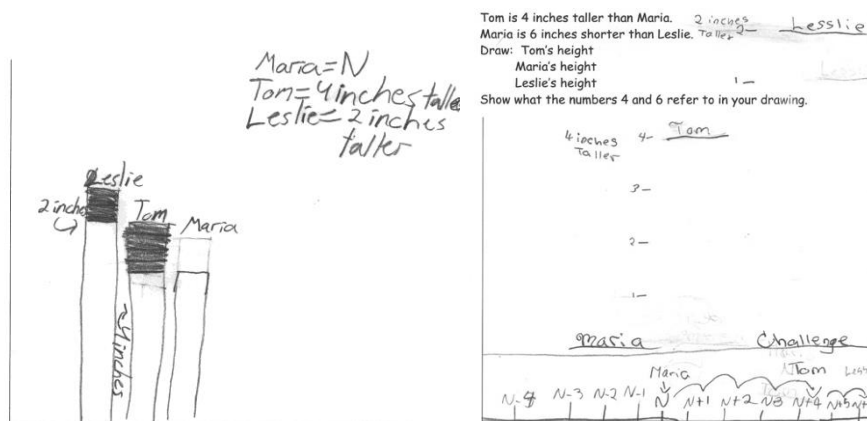 Maria=N
Tom=4inches talle
Leslie=2 inches
taller
Leslie
2 inches
Tom
Maria
4inches
Tom is 4 inches taller than Maria.
Maria is 6 inches shorter than Leslie.
Draw: Tom's height
Maria's height
Leslie's height
Show what the numbers 4 and 6 refer to in your drawing.
2 inches
Taller
2-
Lesslie
1-
4 inches
Taller
4-
Tom
3-
2-
1-
Maria
Challenge
Maria
Tom
Less
N-3 N-2 N-1 N N+1 N+2 N+4 N+5 N+